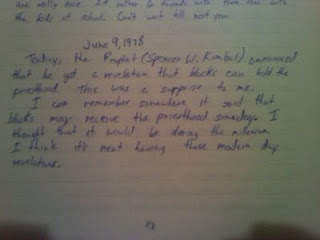 are really nice. I'd rather be friends with them than with
the kids at school. Can't wait till next year.
June 9, 1978
Today, the Prophet (Spencer W. Kimball) announced
that he got a revelation that blacks can hold the
priesthood. This was a surprise to me.
I can remember somewhere it said that
blacks may receive the priesthood someday. I
thought that it would be during the millenium.
I think it's neat having these modern day
revelations.